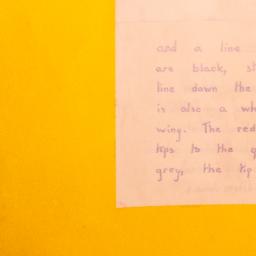 and a line
are black, st
line down the
is also a wh
wing. The red
tips to the g
grey, the tip